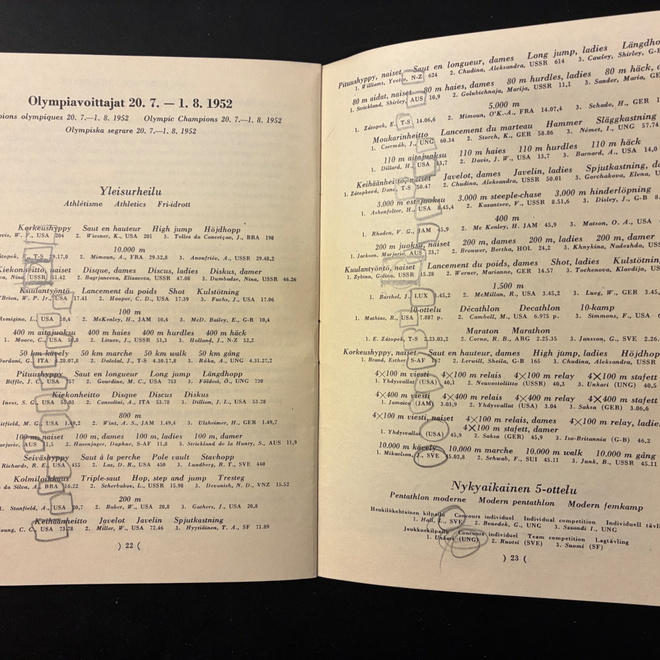 Olympiavoittajat 20. 7. — 1. 8. 1952
olympiques 20. 7.—1. 8. 1952 Olympic Champions 20. 7.—1. 8. 1952
Olympiska segrare 20. 7.—1. 8. 1952
Yleisurheilu
Athlétisme Athletics Fri-idrott
Korkeushyppy Saut en hauteur High jump Höjdhopp
W. F., USA 204 2. Wiesner, K., USA 201 3. Telles da Conceiçao, J., BRA 198
10.000 m
E., T-S 29.17,0 2. Mimoun, A., FRA 29.32,8 3. Anoufriév, A., USSR 29.48,2
Kiekonheitto, naiset Disque, dames Discus, ladies Diskus, damer
Nina, USSR 51.42 2. Bagrjanceva, Elizaveta, USSR 47.08 3. Dumbadze, Nina, USSR 46.26
Kuulantyöntö Lancement du poids Shot Kulstötning
W. P. J., USA 17.41 2. Hooper, C. D., USA 17.39 3. Fuchs, J., USA 17.06
100 m
Remigino, L., USA 10,4 2. McKenley, H., JAM 10,4 3. McD. Bailey, E., G-B 10,4
400 m aitajuoksu 400 m haies 400 m hurdles 400 m häck
Moore, C., USA 50,8 2. Lituev, J., USSR 51,3 3. Holland, J., N-Z 52,2
50 km kävely 50 km marche 50 km walk 50 km gång
G., ITA 4.28.07,8 2. Dolezal, J., T-S 4.30.17,8 3. Róka, A., UNG 4.31.27,2
Pituushyppy Saut en longueur Long jump Längdhopp
Biffle, J. C., USA 757 2. Gourdine, M. C., USA 753 3. Földesi, Ö., UNG 730
Kiekonheitto Disque Discus Diskus
Iness, S. G., USA 55.03 2. Consolini, A., ITA 53.78 3. Dillion, J. L., USA 53.28
800 m
M. G., USA 1.49,2 2. Wint, A. S., JAM 1.49,4 3. Ulzheimer, H., GER 1.49,7
100 m, naiset 100 m, dames 100 m, ladies 100 m, damer
AUS 11,5 2. Hasenjager, Daphne, S-AF 11,8 3. Strickland de la Hunty, S., AUS 11,9
Seiväshyppy Saut à la perche Pole vault Stavhopp
Richards, R. E., USA 455 2. Laz, D. R., USA 450 3. Lundberg, R. T., SVE 440
Kolmiloikka Triple-saut Hop, step and jump Tresteg
da Silva, A., BRA 16.22 2. Scherbakov, L., USSR 15.98 3. Devonish, N. D., VNZ 15.52
200 m
1. Stanfield, A., USA 20,7 2. Baker, W., USA 20,8 3. Gathers, J., USA 20,8
Keihäänheitto Javelot Javelin Spjutkastning
Young, C. C., USA 73.78 2. Miller, W., USA 72.46 3. Hyytiäinen, T. A., SF 71.89
) 22 (
Pituushyppy, naiset Saut en longueur, dames Long jump, ladies
1. Williams, Yvette, N-Z 624 2. Chudina, Aleksandra, USSR 614 3. Cawley, Shirley,
80 m aidat, naiset 80 m haies, dames 80 m hurdles, ladies 80 m häck,
1. Strickland, Shirley, AUS 10,9 2. Golubichnaja, Marija, USSR 11,1 3. Sander, Maria,
5.000 m
1. Zátopek, E., T-S 14.06,6 2. Mimoun, O'K.-A., FRA 14.07,4 3. Schade, H., GER
Moukarinheitto Lancement du marteau Hammer Släggkastning
1. Csermák, J., UNG 60.34 2. Storch, K., GER 58.86 3. Németh, I., UNG 57.74
110 m aitajuoksu 110 m haies 110 m hurdles 110 m häck
1. Dillard, H., USA 13,7 2. Davis, J. W., USA 13,7 3. Barnard, A., USA 14,0
Keihäänheitto, naiset Javelot, dames Javelin, ladies Spjutkastning,
1. Zátopková, Dana, T-S 50.47 2. Chudina, Aleksandra, USSR 50.01 3. Gorchakova, Elena,
3.000 m estejuoksu 3.000 m steeple-chase 3.000 m hinderlöpning
1. Ashenfelter, H., USA 8.45,4 2. Kazantsev, F., USSR 8.51,6 3. Disley, J., G-B
400 m
1. Rhoden, V. G., JAM 45,9 2. Mc Kenley, H. JAM 45,9 3. Matson, O. A., USA
200 m juoksu, naiset 200 m, dames 200 m, ladies 200 m, damer
1. Jackson, Marjorie, AUS 23,7 2. Brouwer, Bertha, HOL 24,2 3. Khnykina, Nadezhda,
Kuulantyöntö, naiset Lancement du poids, dames Shot, ladies Kulstötning,
1. Zybina, Galina, USSR 15.28 2. Werner, Marianne, GER 14.57 3. Tochenova, Klavdija,
1.500 m
1. Barthel, J., LUX 3.45,2 2. McMillan, R., USA 3.45,2 3. Lueg, W., GER
10-ottelu Décathlon Decathlon 10-kamp
1. Mathias, R., USA 7.887 p. 2. Cambell, M., USA 6.975 p. 3. Simmons, F., USA
Maraton Marathon
1. Zátopek, E., T-S 2.23.03,2 2. Corno, R. B., ARG 2.25.35 3. Jansson, G., SVE
Korkeushyppy, naiset Saut en hauteur, dames High jump, ladies Höjdhopp
1. Brand, Esther, S-AF 167 2. Lerwill, Sheila, G-B 165 3. Chudina, Aleksandra, USSR
4×100 m viesti 4×100 m relais 4×100 m relay 4×100 m stafett
1. Yhdysvallat (USA) 40,1 2. Neuvostoliitto (USSR) 40,3 3. Unkari (UNG) 40,5
4×400 m viesti 4×400 m relais 4×400 m relay 4×400 m stafett
1. Jamaica (JAM) 3.03,9 2. Yhdysvallat (USA) 3.04 3. Saksa (GER) 3.06,6
4×100 m viesti, naiset 4×100 m relais, dames 4×100 m relay,
4×100 m stafett, damer
1. Yhdysvallat (USA) 45,9 2. Saksa (GER) 45,9 3. Iso-Britannia (G-B) 46,2
10.000 m kävely 10.000 m marche 10.000 m walk 10.000 m gång
1. Mikaelsson, J., SVE 45.02,8 2. Schwab, F., SUI 45.11 3. Junk, B., USSR 45.11
Nykyaikainen 5-ottelu
Pentathlon moderne Modern pentathlon Modern femkamp
Henkilökohtainen kilpailu Concours individuel Individual competition Individuell
1. Hall, L., SVE 2. Benedek, G., UNG 3. Szondi I., UNG
Joukkuekilpailu Concours individuel Team competition Lagtävling
1. Unkari (UNG) 2. Ruotsi (SVE) 3. Suomi (SF)
) 23 (